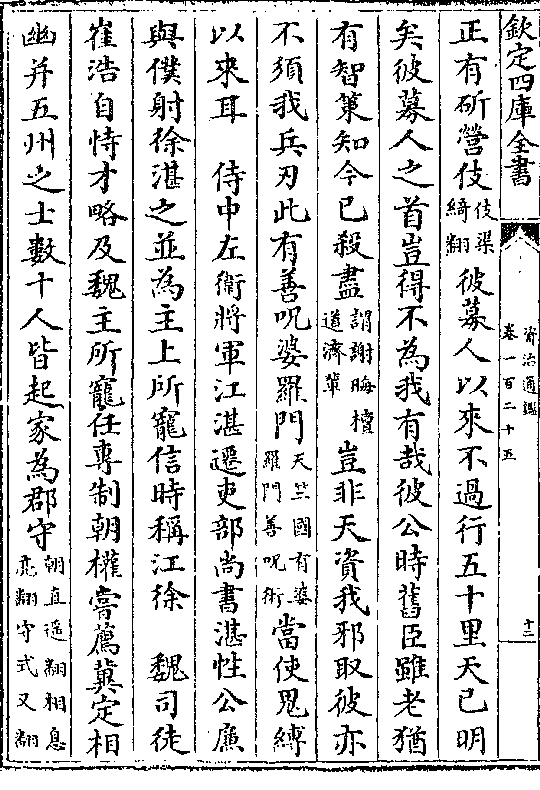 欽定四庫全書
資治通鑑
卷一百二十五
十二
正有斫營伎伎渠綺翻彼募人以來不過行五十里天已明
矣彼募人之首豈得不為我有哉彼公時舊臣雖老猶
有智策知今已殺盡謂謝晦檀道濟輩豈非天資我邪取彼亦
不須我兵刃此有善呪婆羅門天竺國有婆羅門善呪術當使鬼縛
以來耳 侍中左衛將軍江湛遷吏部尚書湛性公廉
與僕射徐湛之並為主上所寵信時稱江徐 魏司徒
崔浩自恃才略及魏主所寵任專制朝權嘗薦冀定相
幽并五州之士數十人皆起家為郡守朝直遙翻相息亮翻守式又翻